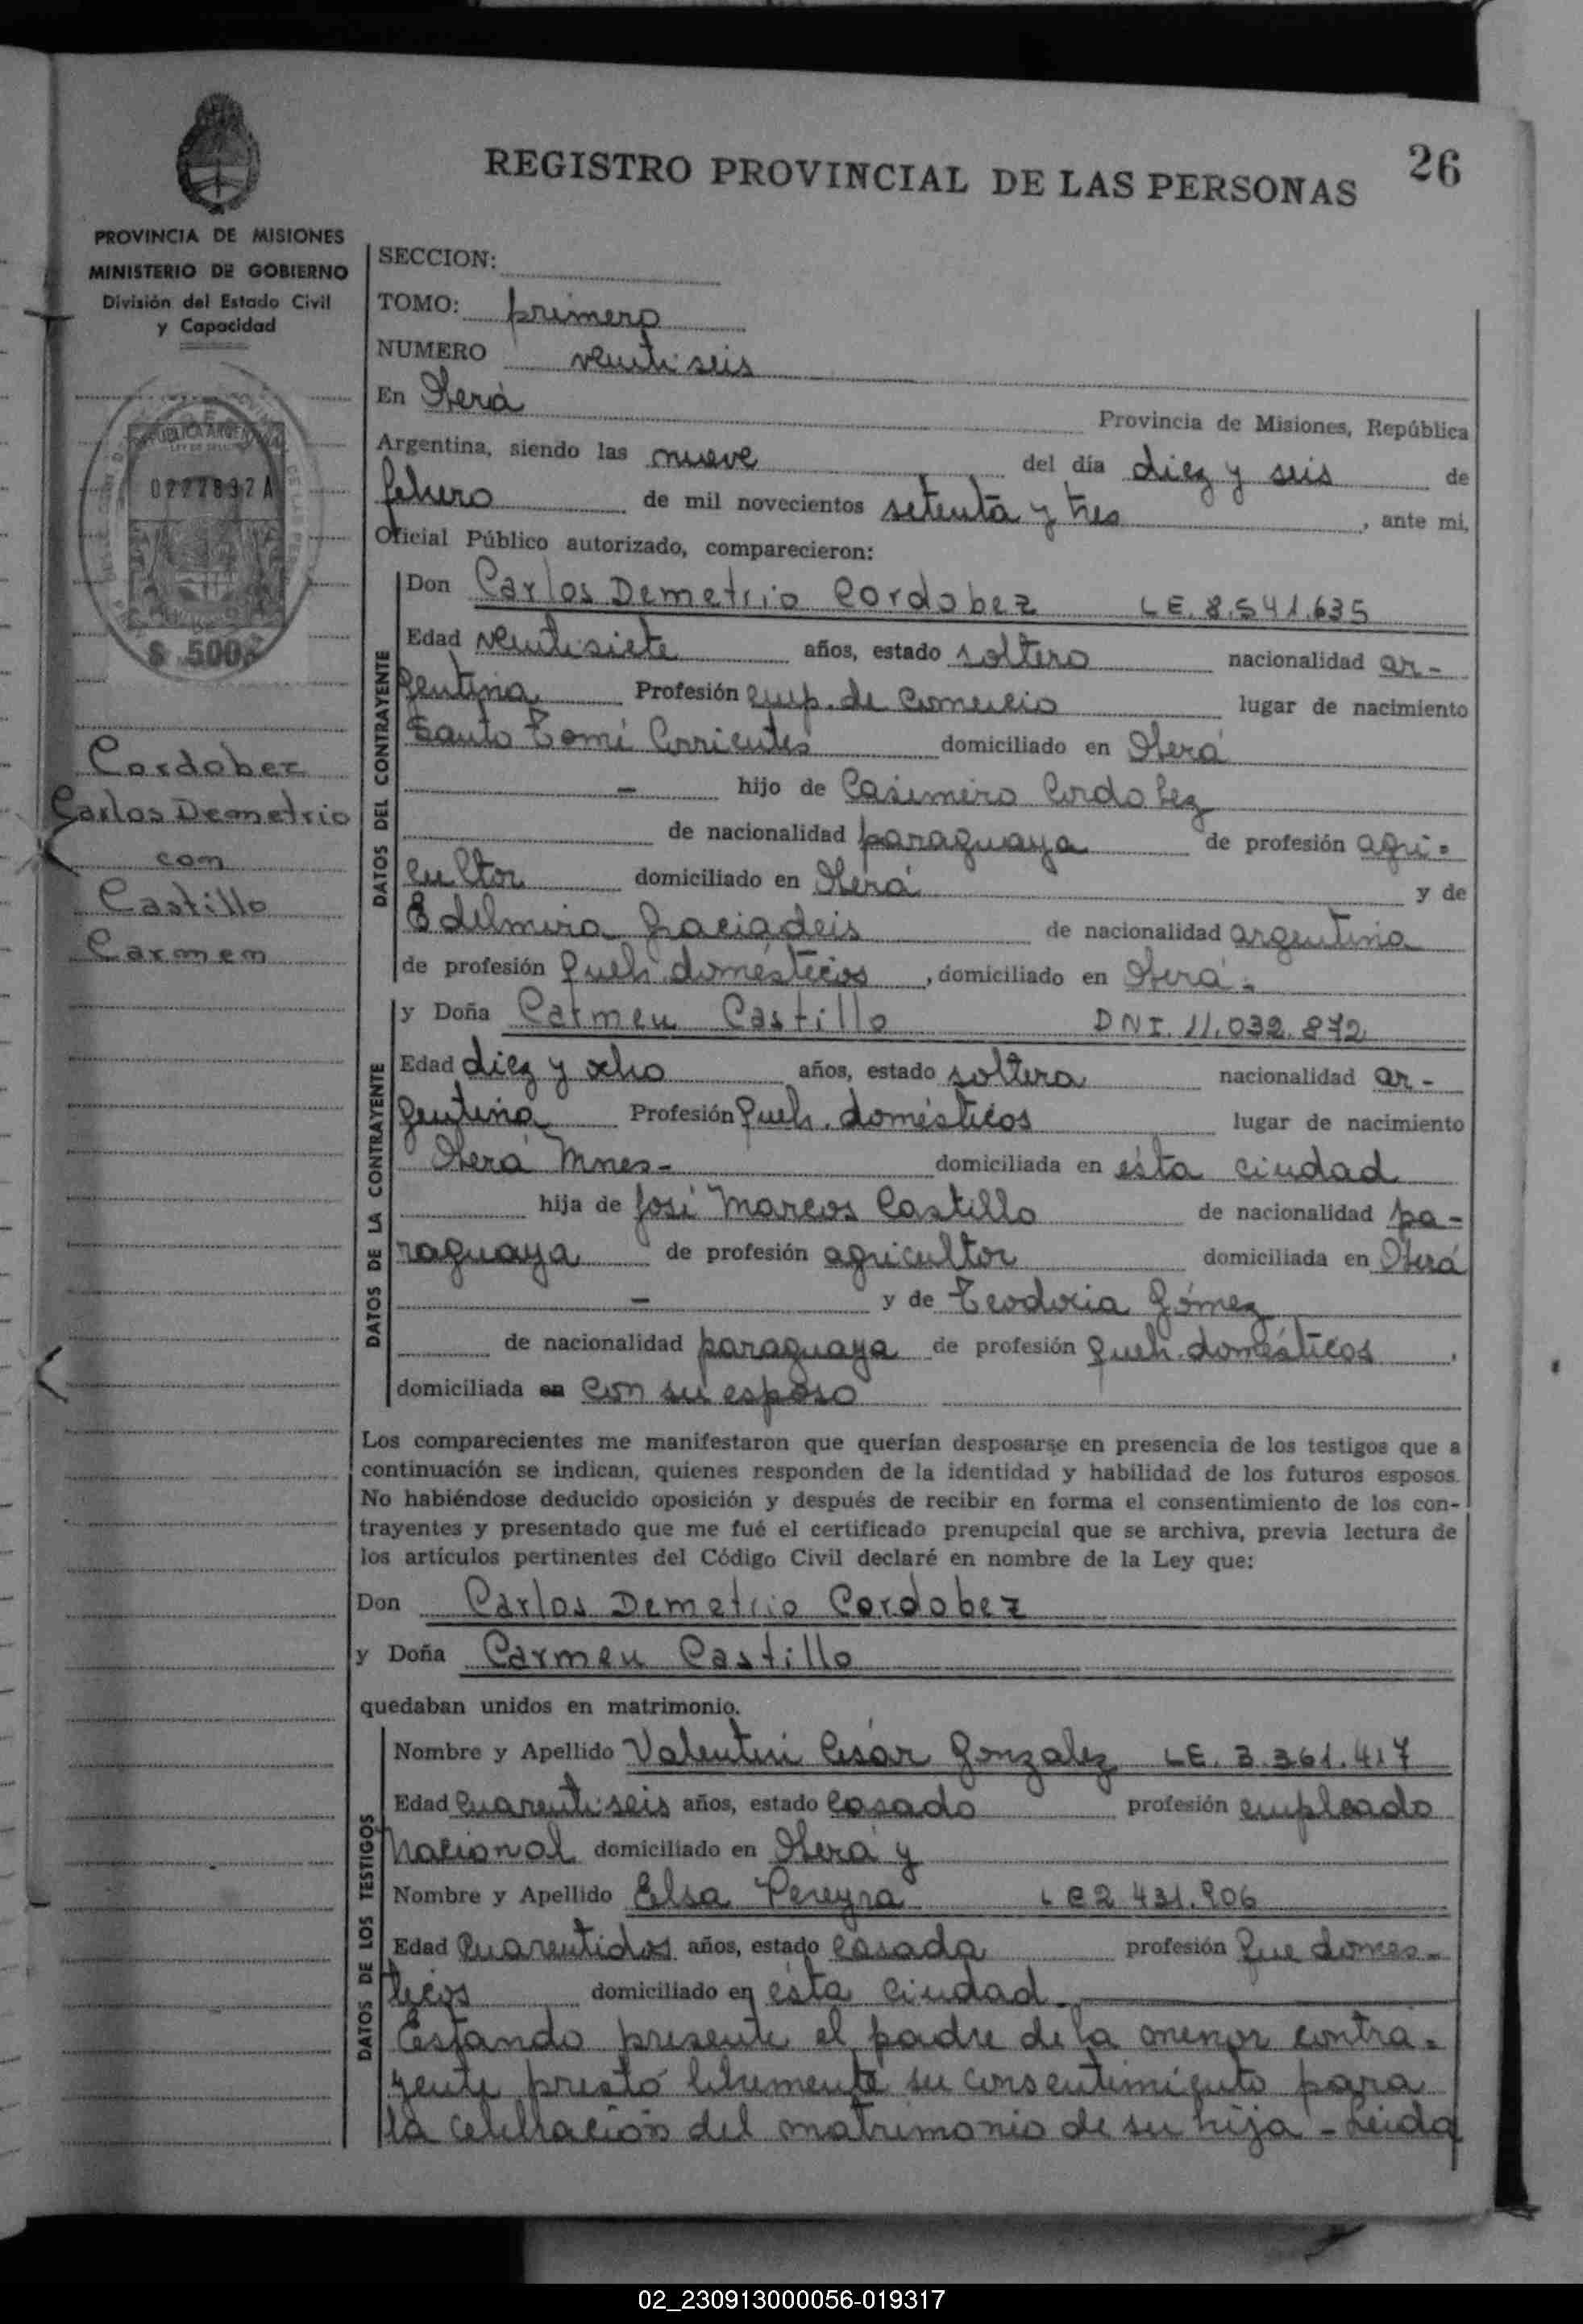 26
REGISTRO PROVINCIAL DE LAS PERSONAS
PROVINCIA DE MISIONES
MINISTERIO DE GOBIERNO
División del Estado Civil
y Capacidad
REPUBLICA ARGENTINA
0227832 A
$ 500
Cordobez
Carlos Demetrio
con
Castillo
Carmen
SECCION:
TOMO: primero
NUMERO veinti seis
En Oberá Provincia de Misiones, República
Argentina, siendo las nueve del día diez y seis de
febrero de mil novecientos setenta y tres, ante mi,
Oficial Público autorizado, comparecieron:
DATOS DEL CONTRAYENTE
Don Carlos Demetrio Cordobez LE. 8.541.635
Edad veintisiete años, estado soltero nacionalidad ar-
gentina Profesión emp. de Comercio lugar de nacimiento
Santo Tomé Corrientes domiciliado en Oberá
- hijo de Casimiro Cordobez
de nacionalidad paraguaya de profesión agri-
cultor domiciliado en Oberá y de
Edelmira de nacionalidad argentina
de profesión Queh. domésticos, domiciliado en Oberá-
DATOS DE LA CONTRAYENTE
y Doña Carmen Castillo DNI. 11.032.872
Edad diez y ocho años, estado soltera nacionalidad ar-
gentina Profesión Queh. domésticos lugar de nacimiento
Oberá Mnes- domiciliada en ésta ciudad
hija de José Marcos Castillo de nacionalidad pa-
raguaya de profesión agricultor domiciliada en Oberá
- y de Teodocia Gómez
de nacionalidad paraguaya de profesión Queh. domésticos,
domiciliada en con su esposo
Los comparecientes me manifestaron que querían desposarse en presencia de los testigos que a
continuación se indican, quienes responden de la identidad y habilidad de los futuros esposos.
No habiéndose deducido oposición y después de recibir en forma el consentimiento de los con-
trayentes y presentado que me fué el certificado prenupcial que se archiva, previa lectura de
los artículos pertinentes del Código Civil declaré en nombre de la Ley que:
Don Carlos Demetrio Cordobez
y Doña Carmen Castillo
quedaban unidos en matrimonio.
DATOS DE LOS TESTIGOS
Nombre y Apellido Valentin César Gonzalez LE. 3.361.417
Edad Cuarenti seis años, estado casado profesión empleado
Nacional domiciliado en Oberá y
Nombre y Apellido Elsa Pereyra LC 2 431.906
Edad Cuarentidos años, estado casada profesión Que domes-
ticos domiciliado en ésta ciudad.
Estando presente el padre de la menor contra-
yente prestó libremente su consentimiento para
la celebración del matrimonio de su hija - Leida
02_230913000056-019317